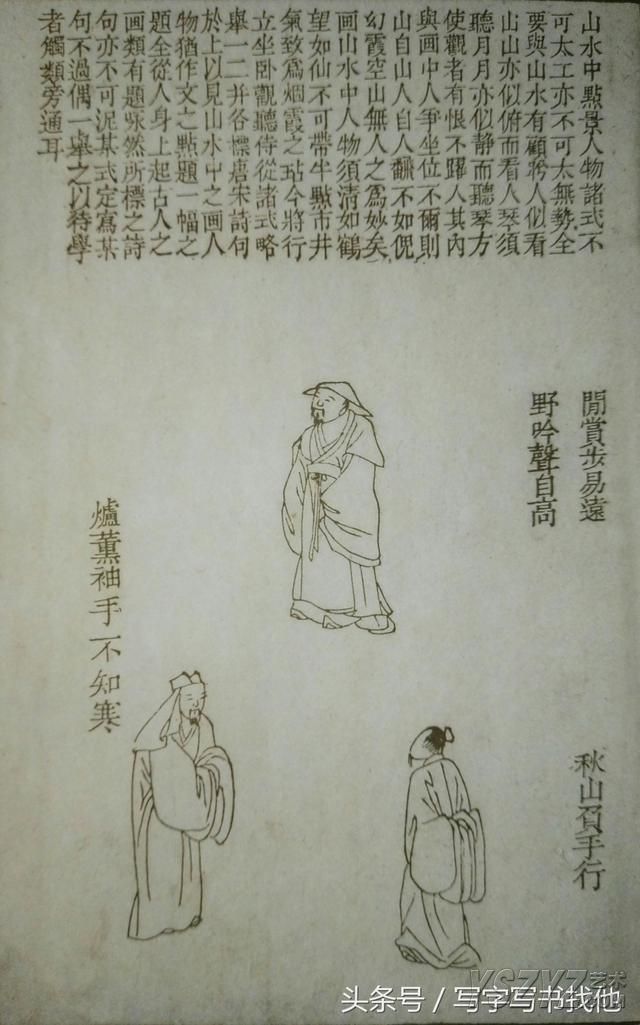 山水中點景人物諸式不
可太工亦不可太無勢全
要與山水有顧盻人似看
山山亦似俯而看人琴須
聽月月亦似静而聽琴方
使觀者有恨不躍入其內
與画中人爭坐位不爾則
山自山人自人飜不如倪
幻霞空山無人之爲妙矣
画山水中人物須清如鶴
望如仙不可帶半點市井
氣致爲烟霞之玷今將行
立坐卧觀聽侍從諸式略
舉一二并各標唐宋詩句
於上以見山水中之画人
物猶作文之點題一幅之
題全從人身上起古人之
画類有題咏然所標之詩
句亦不可泥某式定寫某
句不過偶一舉之以待學
者觸類旁通耳
閒賞步易遠
野吟聲自高
爐薰袖手不知寒
秋山負手行
艺术
头条号／写字写书找他